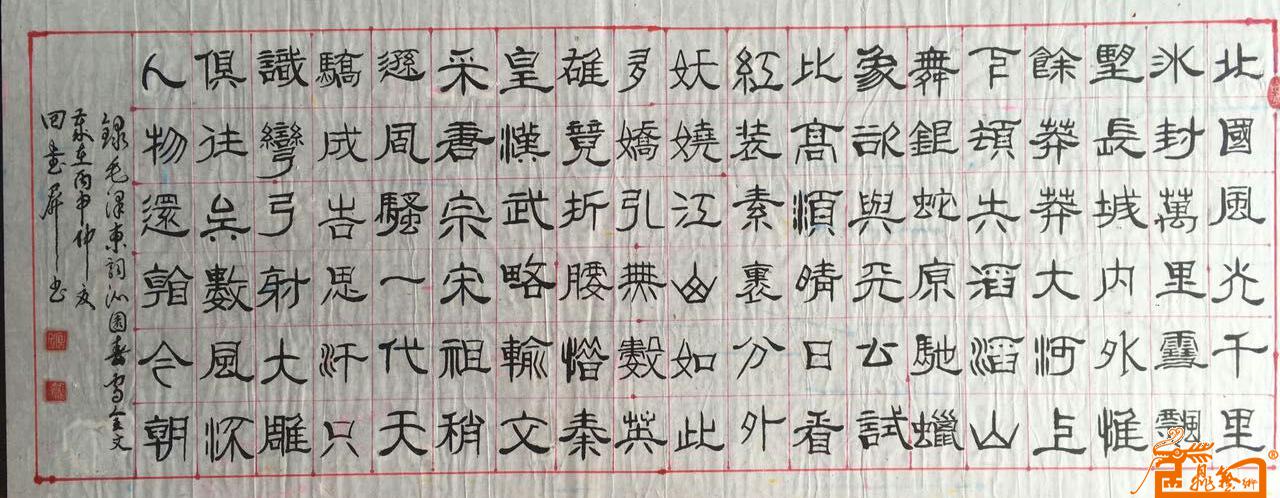 北國風光千里
冰封萬里雪飄
望長城内外惟
餘莽莽大河上
下頓失滔滔山
舞銀蛇原馳蠟
象欲與天公試
比高須晴日看
紅装素裹分外
妖嬈江山如此
多嬌引無數英
雄競折腰惜秦
皇漢武略輸文
采唐宗宋祖稍
遜風騷一代天
驕成吉思汗只
識彎弓射大雕
俱往矣數風流
人物還看今朝
錄毛澤東詞沁園春雪全文
歲在丙申仲夏
田屏書